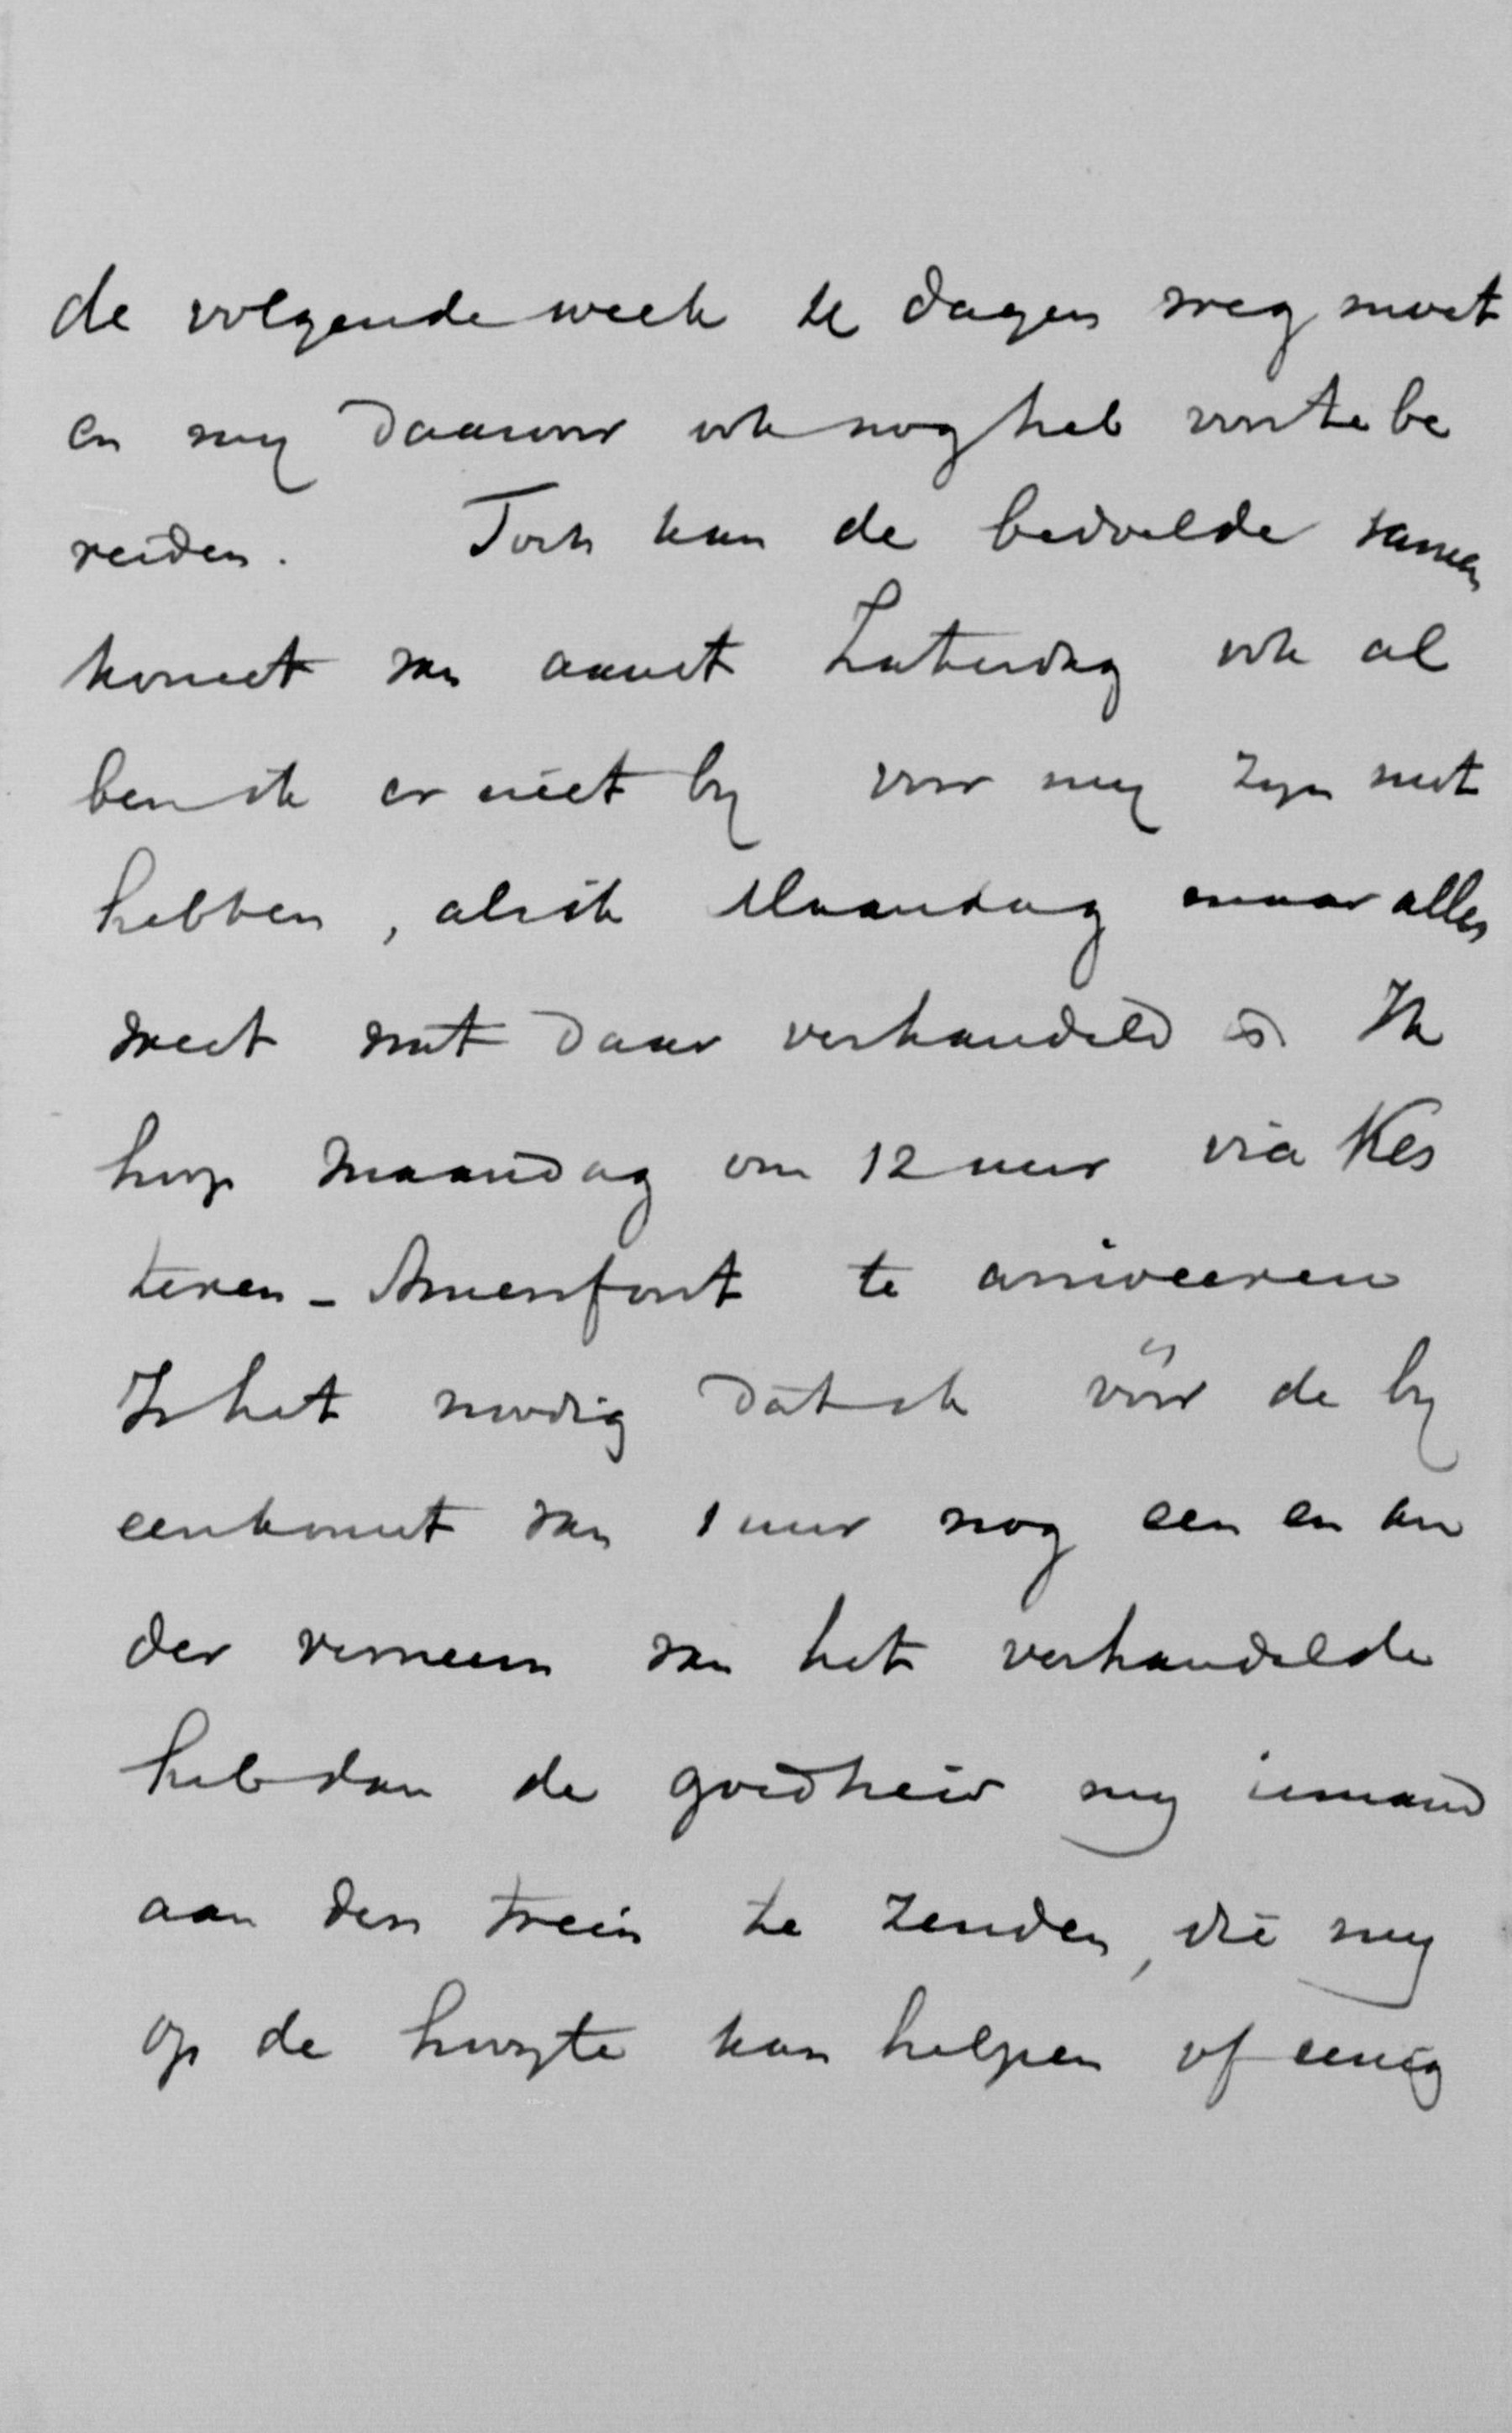 de volgende week 2 dagen weg moet
en my daarvoor ook nog heb voor te be
reiden. Toch kan de bedoelde samen
komst van aanst Zaterdag ook al
ben ik er niet by voor my zyn nut
hebben, als ik Maandag maar alles
weet wat daar verhandeld is Ik
hoop Maandag om 12 uur via Kes
teren - Amersfoort te arriveeren
Is het noodig dat ik vóór de by
eenkomst van 1 uur nog een en an
der verneem van het verhandelde
heb dan de goedheid my iemand
aan den trein te zenden, die my
op de hoogte kan helpen of eenig